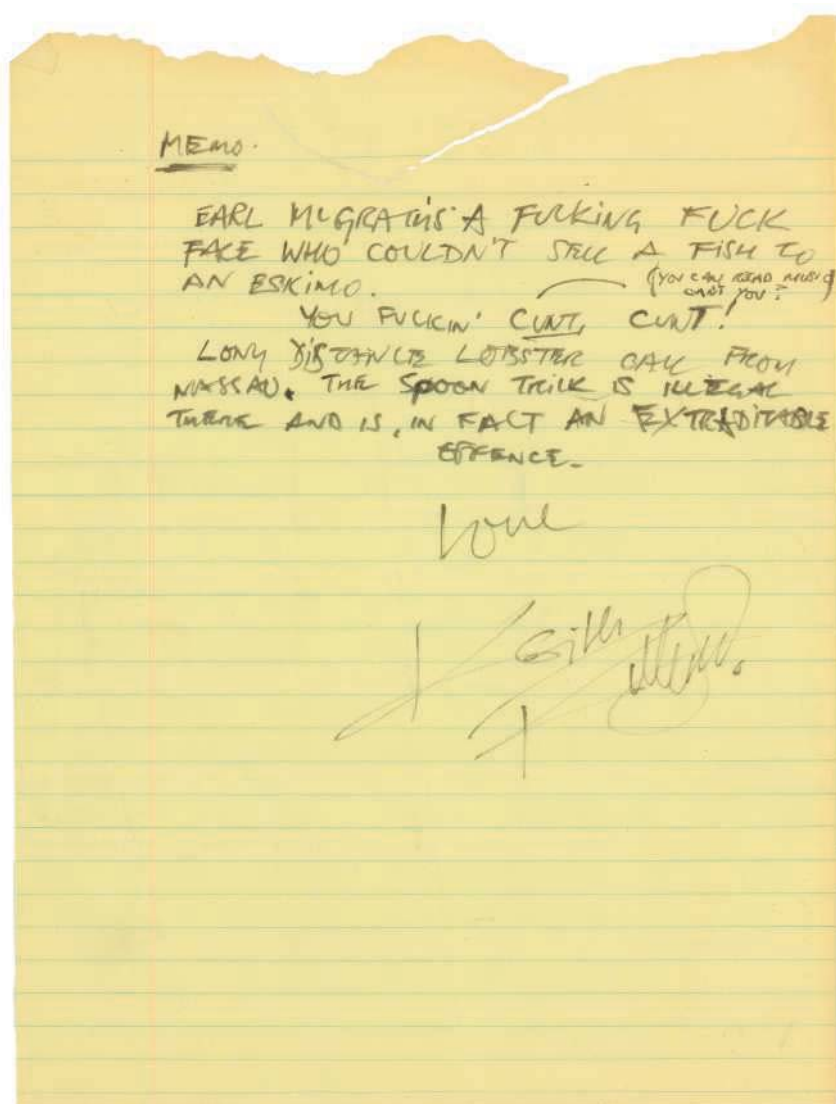 MEMO.
EARL McGRATH IS A FUCKING FUCK
FACE WHO COULDN'T SELL A FISH TO
AN ESKIMO.
(YOU CAN READ MUSIC
CAN'T YOU?)
YOU FUCKIN' CUNT, CUNT!
LONG DISTANCE LOBSTER CALL FROM
NASSAU. THE SPOON TRICK IS ILLEGAL
THERE AND IS, IN FACT AN EXTRADITABLE
OFFENCE.
Love
Keith